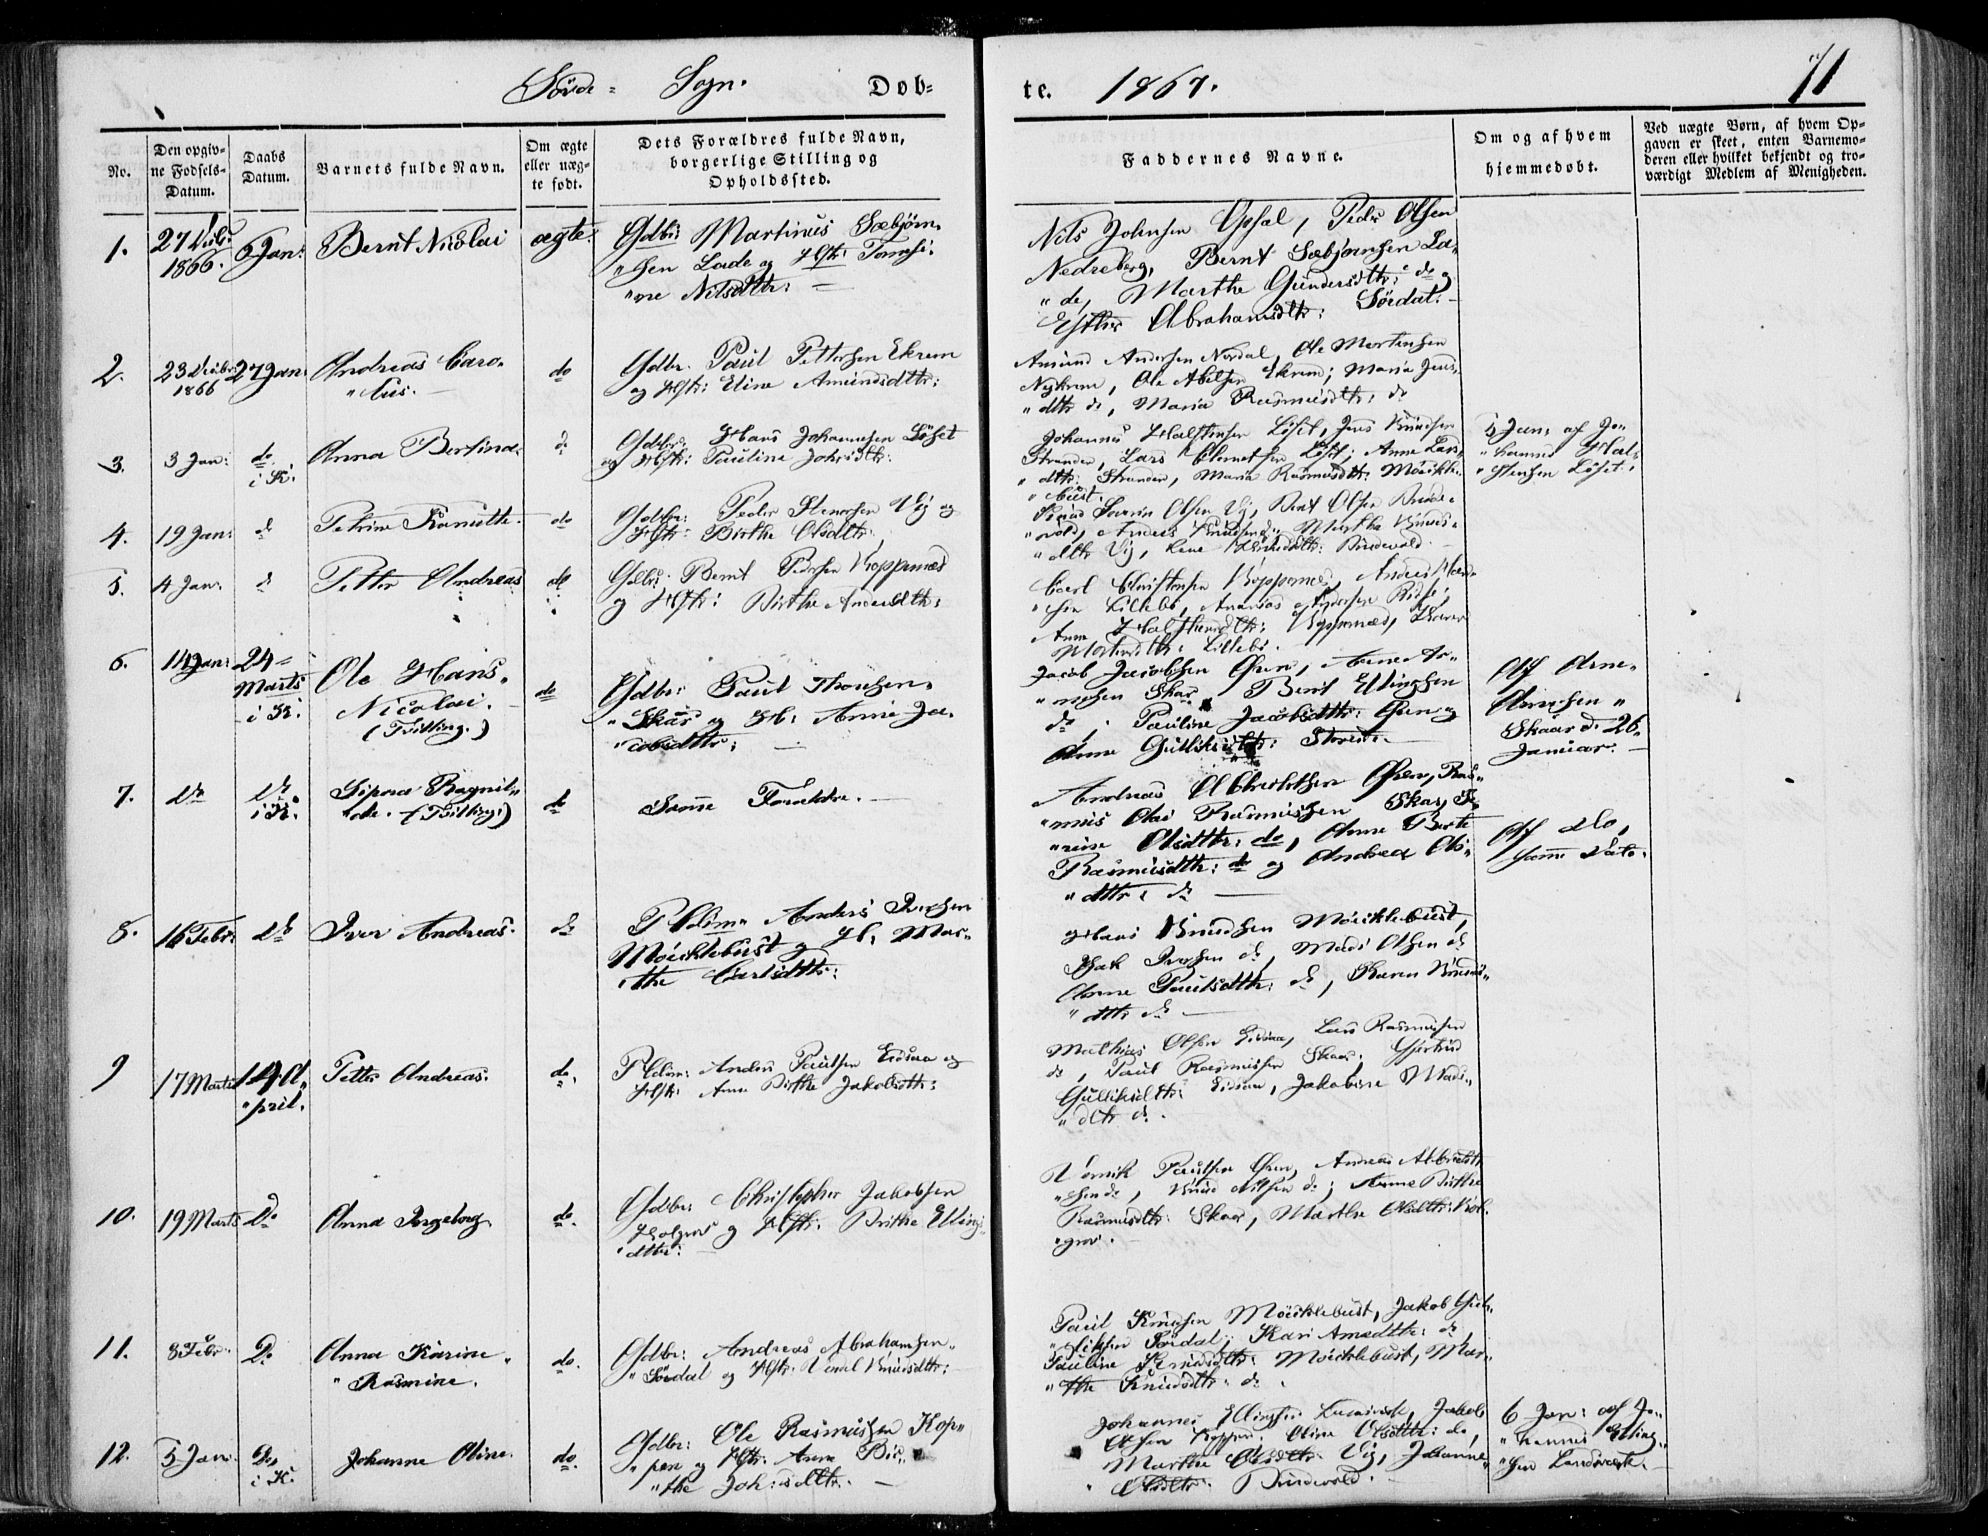 Søvde- Sogn. Døb-
te. 1867. 71
No.
Den opgiv-
ne Fødsels-
Datum.
Daabs
Datum.
Barnets fulde Navn.
Om ægte
eller uæg-
te født.
Dets Forældres fulde Navn,
borgerlige Stilling og
Opholdssted.
Faddernes Navne.
Om og af hvem
hjemmedøbt.
Ved uægte Børn, af hvem Op-
gaven er skeet, enten Barnemo-
deren eller hvilket bekjendt og tro-
værdigt Medlem af Menigheden.
1.
27 Decbr:
1866.
6 Jan:
Bernt Nicolai
ægte.
Gdbr: Martinus Sæbjørn-
"sen Lade og Hstr:
"ne Nilsdttr: —
Nils Johnsen Opsal, Peder Olsen
Nedreberg, Bernt Sæbjørnsen La-
"de, Marthe Gundersdttr: do og
Esther Abrahamsdtr: Sördal. —
2.
23 Decbr:
1866
27 Jan:
Andreas Caro-
"lus. —
do
Gdbr. Paul Pettersen Ekrem
og Hstr: Eline Amundsdttr:
Amund Andersen Nordal, Ole Mortensen
Nykrem, Ole Abelsen Ekrem; Maria Jens-
"dttr do, Maria Rasmusdttr: do
3.
3 Jan:
do
i K.
Anna Bertina.
do
Gdbr: Hans Johannesen Löset
og Hstr: Pauline Johs:dttr:
Johannes Halstensen Löset, Jens Knudsen
Stranden, Lars Clemetsen Löset; Anne Lars-
"dttr: Stranden, Maria Rasmusdttr: Möickle-
"bust.
5 Jan: af Jo-
"hannes Hal-
"stensen Löset.
4.
19 Jan:
do
Petrine Knutte.
do
Gdbr: Peder Stenersen Vig og
Hstr: Birthe Olsdttr:
Severin Olsen Vig, Bent Olsen Rinde-
"vold, Anders Knudsen do, Martha Knuds-
"dttr Vig, Lene Rindevold. —
5.
4 Jan:
do
Petter Andreas
do
Gdbr: Bernt Pedersen Koppernæs
og Hstr: Birthe Andersdttr:
Carl Christensen Koppernæs, Anders Han-
"sen Lillebö, Ananias Andersen Ridse;
Anne Halstensdtr: Koppernæs, Karen
Lillebö.
6.
14 Jan:
24-
Marts
i K.
Ole Hans-
Nicolai.
(Tvilling.)
do
Gdbr: Paul Thorsen-
"Skar og H: Anne Ja-
"cobsdttr: —
Jacob Jacobsen Ören, Arne Ar-
"nesen Skar, Bent Ellingsen
do, Pauline Jacobsdttr: Ören og
Anne Gulliksdtr: Storeide. —
Af Arne-
Arnesen "
Skaar d. 26.
Januar. —
7.
do
do
i K.
Sipora Ragnil-
"de. (Tvilling.)
do
Samme Forældre. —
Andreas Albrektsen Ören, Ras-
"mus Olai Rasmussen Skar, Se-
"rine Olsdttr: do, Anne Berte
Rasmusdttr: do og Andrea Ols-
"dttr: do —
Af do,
samme Dato.
8.
16 Febr:
do
Iver Andreas.
do
Pldsm: Anders Iversen
Möicklebust og H: Mar-
"the Carlsdttr:
Hans Knudsen Möicklebust,
Isak Iversen do, Mads Olsen do
Anne Paulsdttr: do, Karen Knuds-
"dttr do —
9
17 Marts
14 A-
"pril.
Petter Andreas.
do.
Pldsm: Anders Paulsen Eidsaa og
Hstr: Anne Birthe Jakobsdttr:
Mathias Olsen Eidsaa, Lars Rasmussen
do, Paul Rasmussen Skaar; Gjertrud
Gulliksdttr: Eidsaa, Jakobine Mads-
"dttr do.
10.
19 Marts
Do
Anna Ingeborg.
do.
Gdbr: Christopher Jakobsen
og Hstr: Birthe Elling-
"dttr: —
Paulsen Ören, Andreas Albrekt-
"sen do, Knud Nilsen do; Anne Birthe
Rasmusdttr: Skaar, Marthe Olsdttr:
11.
8 Febr:
Do
Anna Karine-
"Rasmine.
do.
Gdbr: Andreas Abrahamsen-
"Sördal og Hstr: Knudsdttr:
Paul Knudsen Möicklebust, Jakob Gul-
"liksen Sördal; Kari Amsdttr: do
Pauline Knudsdttr: Möicklebust, Mar-
"the Knudsdttr: do.
12.
5 Jan:
Do,
i K.
Johanne Oline.
do.
Gdbr: Ole Rasmussen Kop-
"pen og Hstr: Anne Bir-
"the Joh:sdttr. —
Johannes Ellingsen Jakob
Olsen Koppen, Oline Olsdttr: do,
Marthe Olsdttr: Vig, Johanne
Olsdttr: Rindevold. —
6 Jan: af Jo-
"hannes Elling-
"sen Landsverk. —